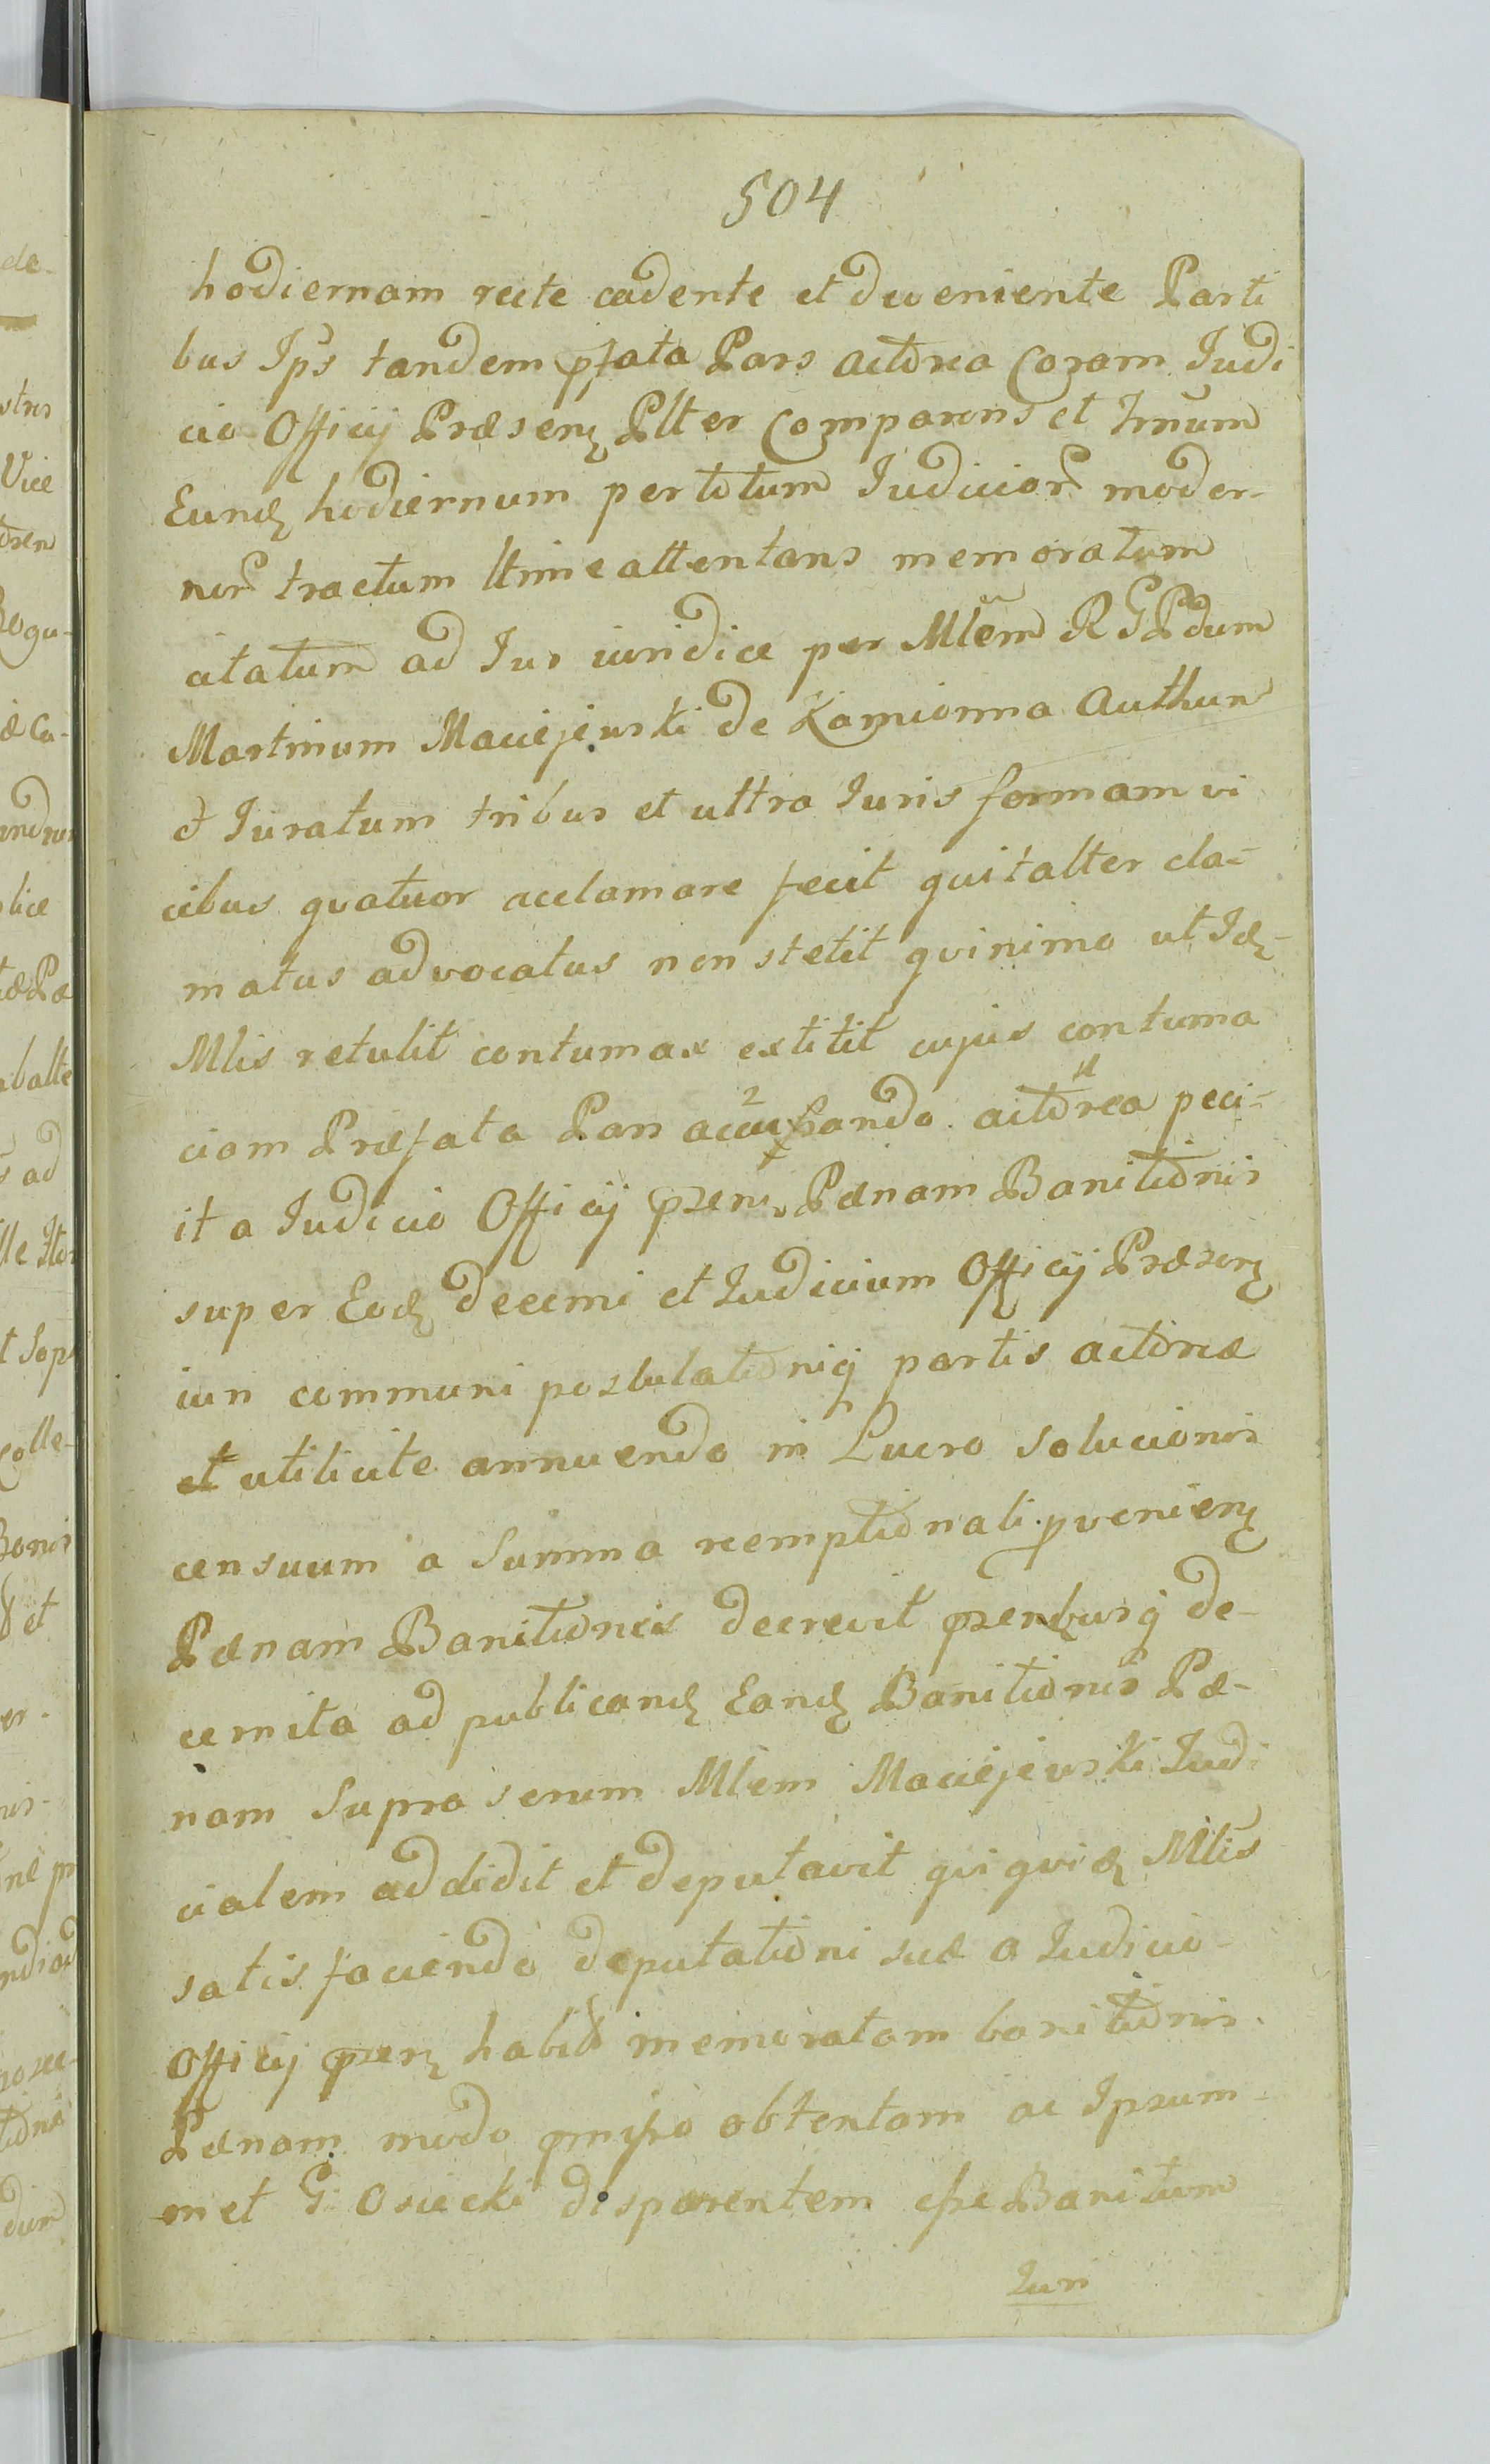 504
hodiernam recte cadente et deveniente Parti
bus Ips tandem pfata Pars actorea Coram Judi
cio Officij Præsenʒ Plter Comparens et Trnum
Eundʒ hodiernum per totum Judicior moder-
nor tractum ltime attentans memoratum
citatum ad Jus iuridice per Mlem R G Pdum
Martinum Maciejewski de Kamionna Authen
et Juratum tribus et ultra Juris formam vi
cibus quatuor acclamare fecit qui taliter cla-
matus advocatus non stetit quinimo ut Idʒ-
Mlis retulit contumax extitit cujus contuma
ciam Præfata Pars accusando actorea peci-
it a Judicio Officij pzens Pænam Banitionis
super Eodʒ decerni et Judicium Officij Præsenʒ
iuri communi postulationiqj partis actoreæ
et utilicite annuendo in Lucro solucionis
censuum a Summa reemptionali pvenienʒ
Pænam Banitionis decrevit pzenʒbusqj de-
cernit a ad publicandʒ Eandʒ Banitionis Pæ-
nam Supra serum Mlem Maciejewski Judi
cialem addidit et deputavit qui quidʒ Mlis
satisfaciendo deputationi suæ a Judicio
Officij pzenʒ habit memoratam banitionis
Pænam modo pmisso obtentam ac Ipsum-
met G Osiecki disparentem esse Banitum
Juri

de-
Vice
Bogu-
æ Ca-
blice
s ad
t Sop
Colle-
Bonis
et
er.
nis-
dum